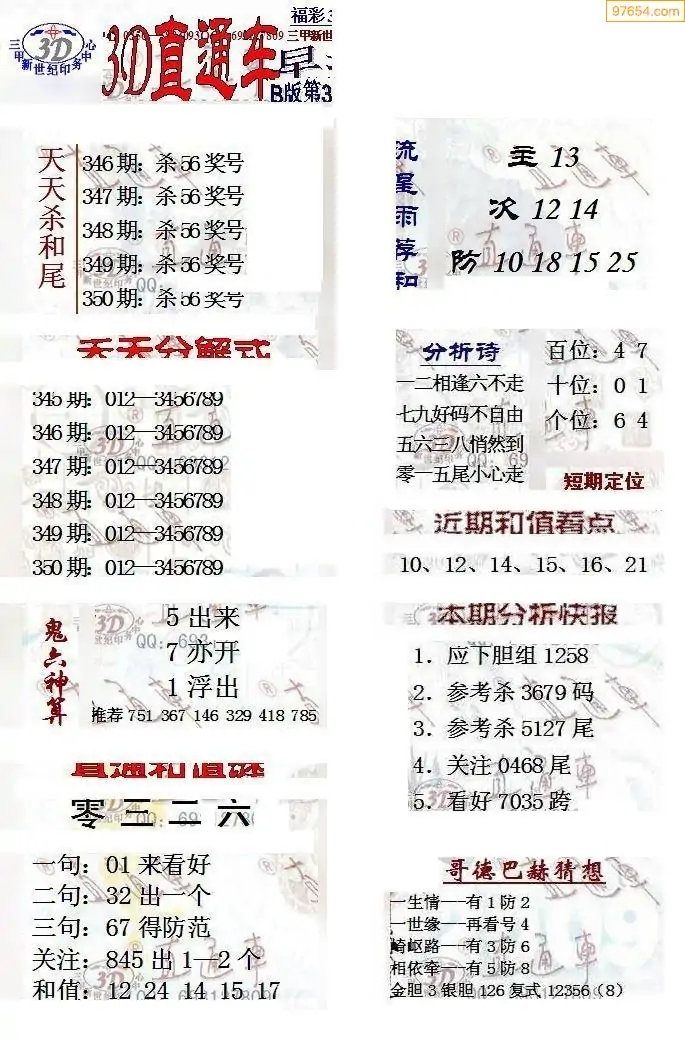 97654.com
福彩3
三甲新世纪印务中心
3D
3D直通车
早
B版第3
天天杀和尾
346期：杀56奖号
347期：杀56奖号
348期：杀56奖号
349期：杀56奖号
350期：杀56奖号
流星雨荐和
主 13
次 12 14
防 10 18 15 25
天天分解式
345期：012—3456789
346期：012—3456789
347期：012—3456789
348期：012—3456789
349期：012—3456789
350期：012—3456789
分析诗
一二相逢六不走
七九好码不自由
五六三八悄然到
零一五尾小心走
百位：4 7
十位：0 1
个位：6 4
短期定位
近期和值看点
10、12、14、15、16、21
鬼六神算
5出来
7亦开
1浮出
推荐 751 367 146 329 418 785
本期分析快报
1．应下胆组1258
2．参考杀3679码
3．参考杀5127尾
4．关注0468尾
5．看好7035跨
直通和值谜
零二二六
一句：01来看好
二句：32出一个
三句：67得防范
关注：845出1—2个
和值：12 24 14 15 17
哥德巴赫猜想
一生情——有1防2
一世缘——再看号4
崎岖路——有3防6
相依牵——有5防8
金胆3银胆126复式12356（8）